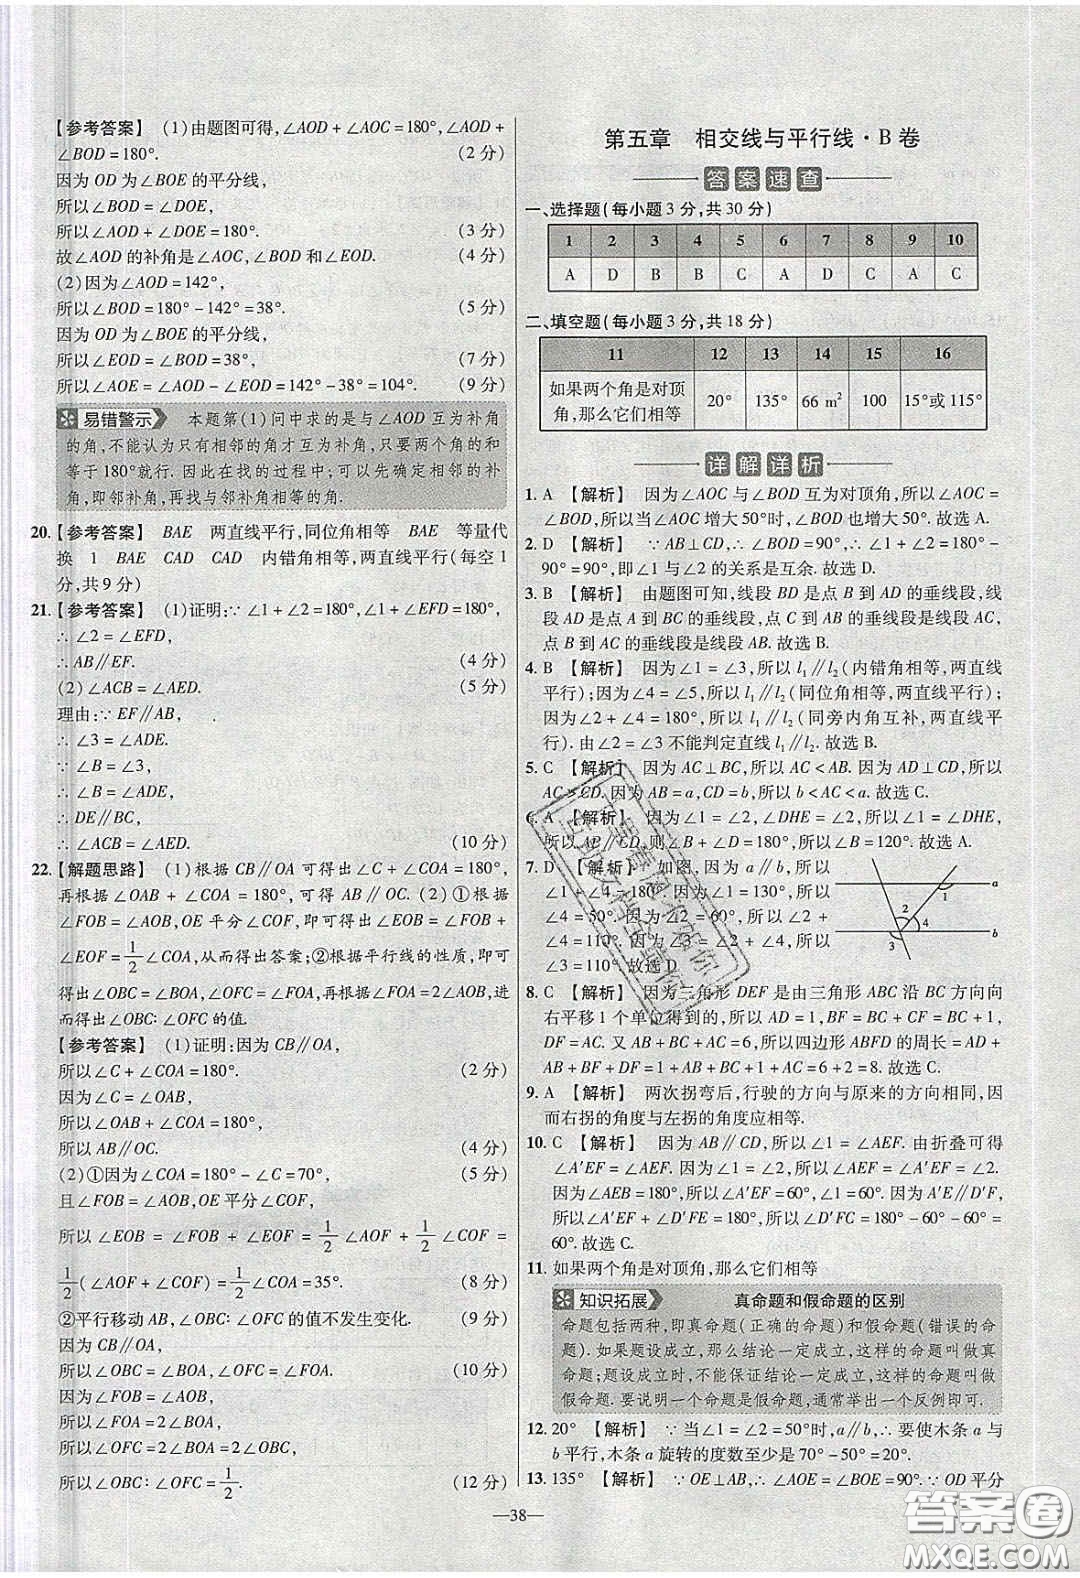 【参考答案】 (1)由题图可得,∠AOD+∠AOC=180°,∠AOD+
∠BOD=180°. (2分)
因为OD为∠BOE的平分线,
所以∠BOD=∠DOE,
所以∠AOD+∠DOE=180°. (3分)
故∠AOD的补角是∠AOC,∠BOD和∠EOD. (4分)
(2)因为∠AOD=142°,
所以∠BOD=180°-142°=38°. (5分)
因为OD为∠BOE的平分线,
所以∠EOD=∠BOD=38°, (7分)
所以∠AOE=∠AOD-∠EOD=142°-38°=104°. (9分)
易错警示 本题第(1)问中求的是与∠AOD互为补角
的角,不能认为只有相邻的角才互为补角,只要两个角的和
等于180°就行.因此在找的过程中;可以先确定相邻的补
角,即邻补角,再找与邻补角相等的角.
20.【参考答案】 BAE 两直线平行,同位角相等 BAE 等量代
换 1 BAE CAD CAD 内错角相等,两直线平行(每空1
分,共9分)
21.【参考答案】 (1)证明:∵∠1+∠2=180°,∠1+∠EFD=180°,
∴∠2=∠EFD,
∴AB∥EF. (4分)
(2)∠ACB=∠AED. (5分)
理由:∵EF∥AB,
∴∠3=∠ADE.
∵∠B=∠3,
∴∠B=∠ADE,
∴DE∥BC,
∴∠ACB=∠AED. (10分)
22.【解题思路】 (1)根据CB∥OA可得出∠C+∠COA=180°,
再根据∠OAB+∠COA=180°,可得出AB∥OC.(2)①根据
∠FOB=∠AOB,OE平分∠COF,即可得出∠EOB=∠FOB+
∠EOF=1/2∠COA,从而得出答案;②根据平行线的性质,即可
得出∠OBC=∠BOA,∠OFC=∠FOA,再根据∠FOA=2∠AOB,进
而得出∠OBC∶∠OFC的值.
【参考答案】 (1)证明:因为CB∥OA,
所以∠C+∠COA=180°. (2分)
因为∠C=∠OAB,
所以∠OAB+∠COA=180°,
所以AB∥OC. (4分)
(2)①因为∠COA=180°-∠C=70°, (5分)
且∠FOB=∠AOB,OE平分∠COF,
所以∠EOB=∠FOB+∠EOF=1/2∠AOF+1/2∠COF=
1/2(∠AOF+∠COF)=1/2∠COA=35°. (8分)
②平行移动AB,∠OBC∶∠OFC的值不发生变化. (9分)
因为CB∥OA,
所以∠OBC=∠BOA,∠OFC=∠FOA. (10分)
因为∠FOB=∠AOB,
所以∠FOA=2∠BOA,
所以∠OFC=2∠BOA=2∠OBC,
所以∠OBC∶∠OFC=1/2. (12分)
第五章 相交线与平行线·B卷
答案速查
一、选择题(每小题3分,共30分)
1 2 3 4 5 6 7 8 9 10
A D B B C A D C A C
二、填空题(每小题3分,共18分)
11 12 13 14 15 16
如果两个角是对顶角,那么它们相等 20° 135° 66 m² 100 15°或115°
详解详析
1. A 【解析】 因为∠AOC与∠BOD互为对顶角,所以∠AOC=
∠BOD,所以当∠AOC增大50°时,∠BOD也增大50°.故选A.
2. D 【解析】 ∵AB⊥CD,∴∠BOD=90°,∴∠1+∠2=180°-
90°=90°,即∠1与∠2的关系是互余.故选D.
3. B 【解析】 由题图可知,线段BD是点B到AD的垂线段,线
段AD是点A到BC的垂线段,点C到AB的垂线段是线段AC,
点B到AC的垂线段是线段AB.故选B.
4. B 【解析】 因为∠1=∠3,所以l₁∥l₂(内错角相等,两直线
平行);因为∠4=∠5,所以l₁∥l₂(同位角相等,两直线平行);
因为∠2+∠4=180°,所以l₁∥l₂(同旁内角互补,两直线平
行).由∠2=∠3不能判定直线l₁∥l₂.故选B.
5. C 【解析】 因为AC⊥BC,所以AC<AB.因为AD⊥CD,所以
AC>CD.因为AB=a,CD=b,所以b<AC<a.故选C.
6. A 【解析】 因为∠1=∠2,∠DHE=∠2,所以∠1=∠DHE,
所以AB∥CD,所以∠D+∠B=180°,所以∠B=120°.故选A.
7. D 【解析】 如图,因为a∥b,所以
∠1+∠4=180°.因为∠1=130°,所以
∠4=50°.因为∠2=60°,所以∠2+
∠4=110°.因为∠3=∠2+∠4,所以
∠3=110°.故选D.
a
1
2
4
b
3
8. C 【解析】 因为三角形DEF是由三角形ABC沿BC方向向
右平移1个单位得到的,所以AD=1,BF=BC+CF=BC+1,
DF=AC.因为AB+BC+AC=6,所以四边形ABFD的周长=AD+
AB+BF+DF=1+AB+BC+1+AC=6+2=8.故选C.
9. A 【解析】 两次拐弯后,行驶的方向与原来的方向相同,因
而右拐的角度与左拐的角度应相等.
10. C 【解析】 因为AB∥CD,所以∠1=∠AEF.由折叠可得
∠A′EF=∠AEF.因为∠1=∠2,所以∠A′EF=∠AEF=∠2.
因为∠AEB=180°,所以∠A′EF=60°,∠1=60°.因为A′E∥D′F,
所以∠A′EF+∠D′FE=180°,所以∠D′FC=180°-60°-60°=
60°.故选C.
11. 如果两个角是对顶角,那么它们相等
知识拓展 真命题和假命题的区别
命题包括两种,即真命题(正确的命题)和假命题(错误的命
题).如果题设成立,那么结论一定成立,这样的命题叫做真
命题;题设成立时,不能保证结论一定成立,这样的命题叫做
假命题.要说明一个命题是假命题,通常举出一个反例即可.
12. 20° 【解析】 ∵当∠1=∠2=50°时,a∥b,∴要使木条a与
b平行,木条a旋转的度数至少是70°-50°=20°.
13. 135° 【解析】 ∵OE⊥AB,∴∠AOE=∠BOE=90°.∵OD平分
—38—
答案圈
MXQE.COM